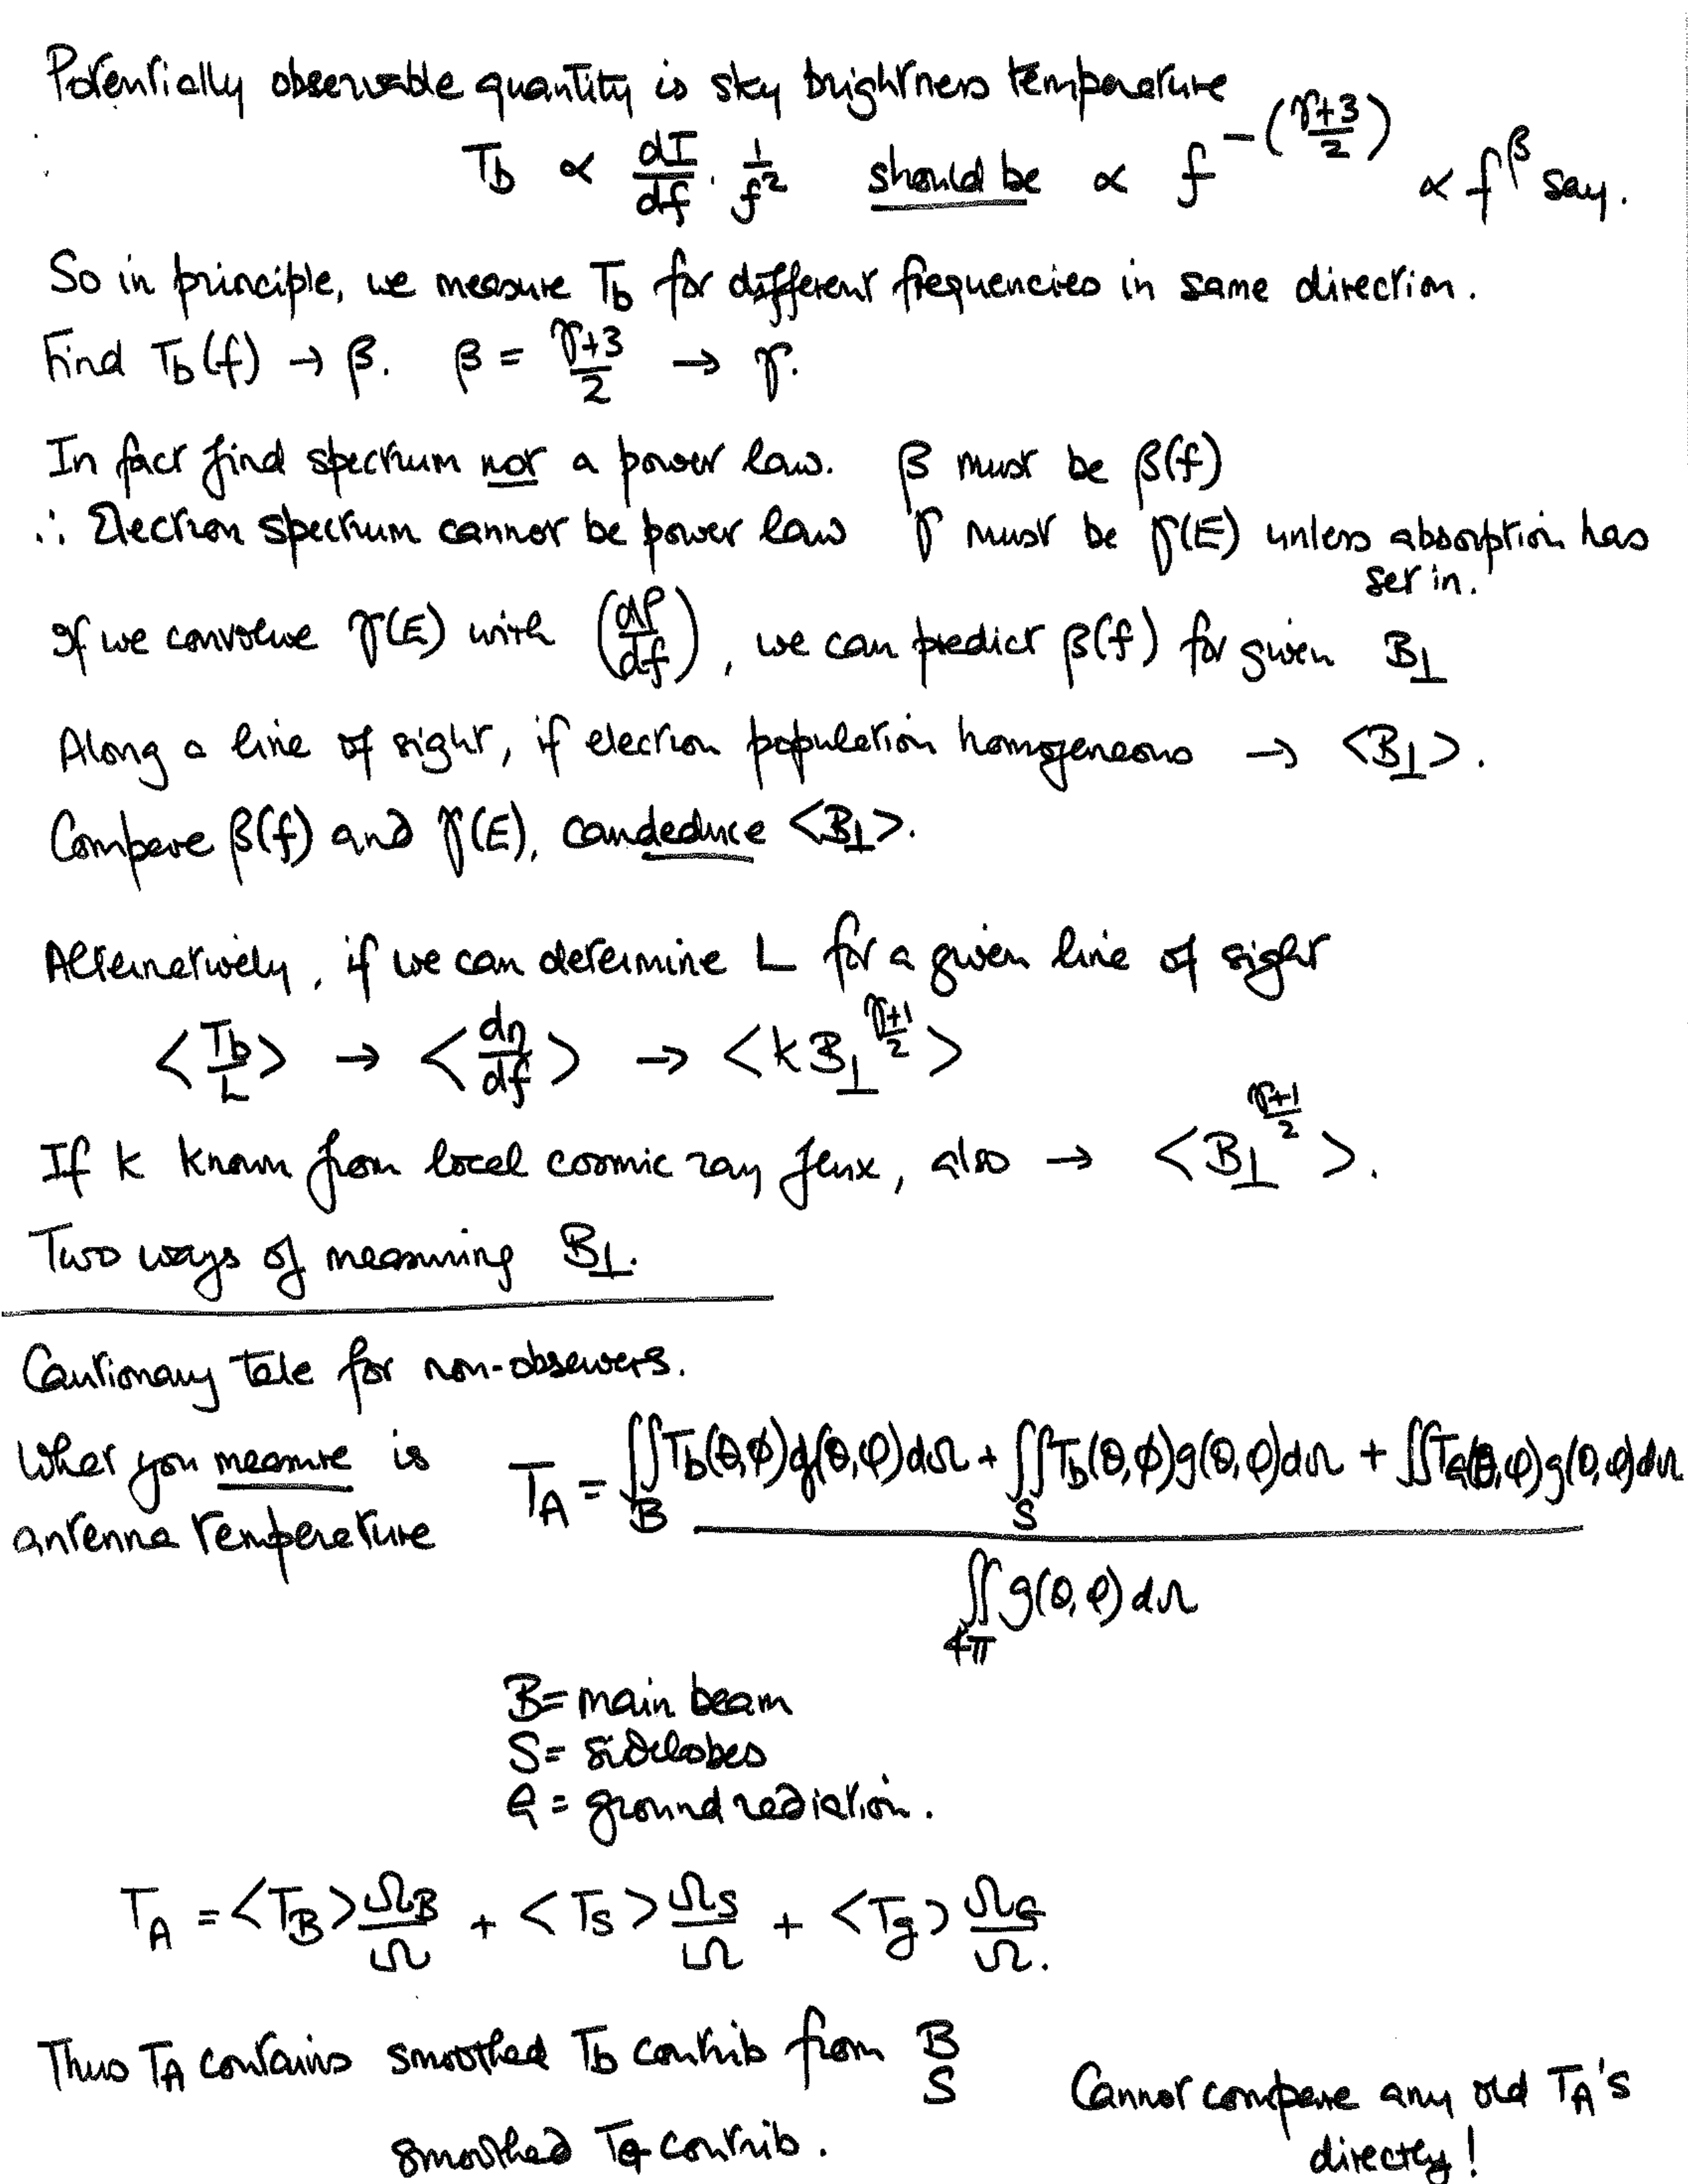 Potentially observable quantity is sky brightness temperature
T_b ∝ dI/df · 1/f² should be ∝ f^-((γ+3)/2) ∝ f^β say.
So in principle, we measure T_b for different frequencies in same direction.
Find T_b(f) → β. β = (γ+3)/2 → γ.
In fact find spectrum not a power law. β must be β(f)
∴ Electron spectrum cannot be power law γ must be γ(E) unless absorption has
set in.
If we convolve γ(E) with (dP/df), we can predict β(f) for given B⊥
Along a line of sight, if electron population homogeneous → <B⊥>.
Compare β(f) and γ(E), can deduce <B⊥>.
Alternatively, if we can determine L for a given line of sight
<T_b/L> → <dη/df> → <k B⊥^((γ+1)/2)>
If k known from local cosmic ray flux, also → <B⊥^((γ+1)/2)>.
Two ways of measuring B⊥.
Cautionary tale for non-observers.
What you measure is
antenna temperature
T_A = (∬_B T_b(θ,φ)g(θ,φ)dΩ + ∬_S T_b(θ,φ)g(θ,φ)dΩ + ∬T_G(θ,φ)g(θ,φ)dΩ) / ∬_4π g(θ,φ)dΩ
B = main beam
S = sidelobes
G = ground radiation.
T_A = <T_B> Ω_B/Ω + <T_S> Ω_S/Ω + <T_g> Ω_G/Ω.
Thus T_A contains smoothed T_b contrib from B
S
smoothed T_G contrib.
Cannot compare any old T_A's
directly!